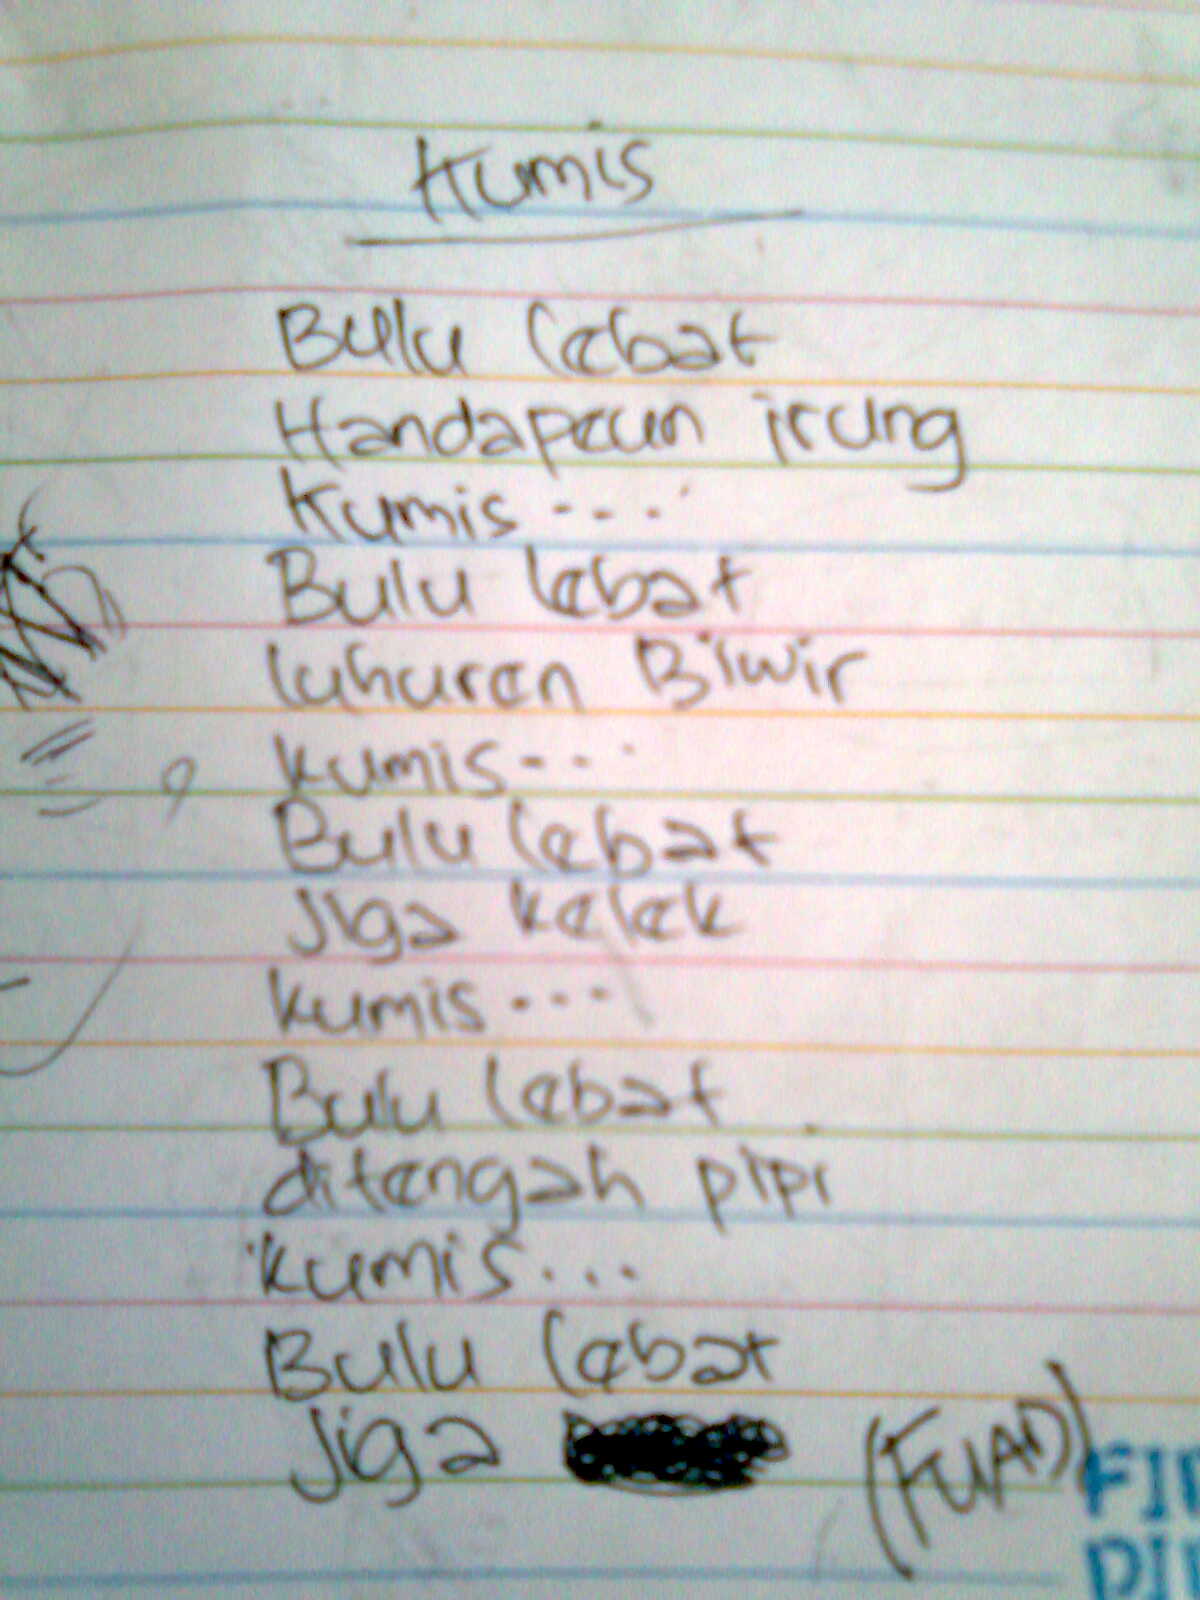 Kumis
Bulu lebat
Handapeun irung
Kumis...
Bulu lebat
luhuren Biwir
kumis...
Bulu lebat
Jiga kelek
kumis...
Bulu lebat
ditengah pipi
kumis...
Bulu lebat
Jiga
(FUAD)